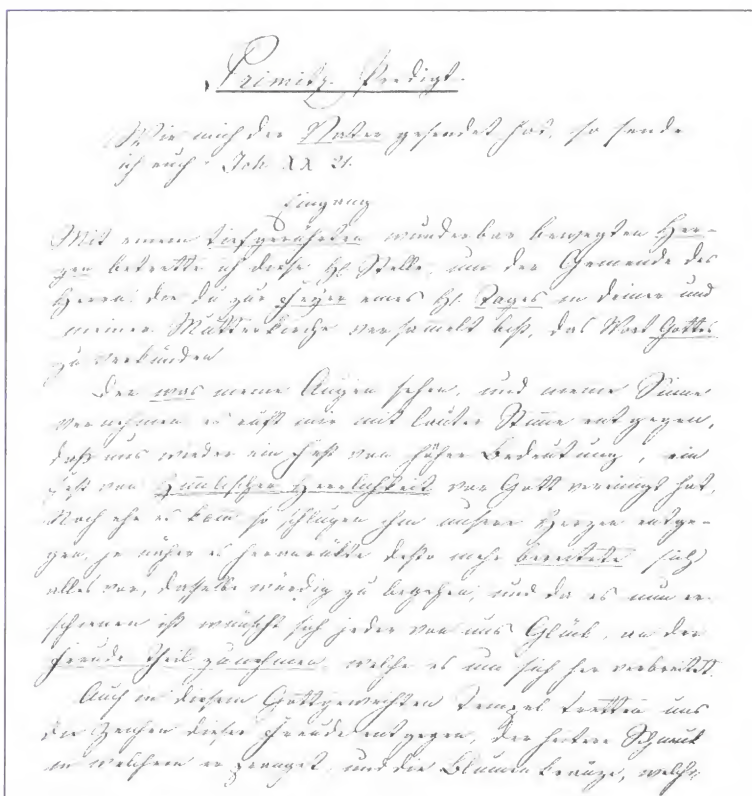 Primitz. Predigt.
Wie mich der Vater gesendet hat, so sende
ich euch. Joh. XX 21.
Eingang
Mit einem tiefgerührten wunderbar bewegten Her-
zen betrette ich diese hl. Stelle, um der Gemeinde des
Herrn: die du zur Feyer eines hl. Tages in deiner und
meiner Mutterkirche versamelt bist, das Wort Gottes
zu verkünden
Den was meine Augen sehen, und meine Sinne
vernehmen es ruft mir mit lauter Stimme entgegen,
daß uns wieder ein Fest von hoher Bedeutung, ein
Fest von himlischer Herrlichkeit vor Gott vereinigt hat,
Noch ehe es kam so schlugen ihm unsere Herzen entge-
gen, je näher es heranrükte desto mehr bereitete sich
alles vor, dasselbe würdig zu begehen, und da es nun er-
schienen ist wünscht sich jeder von uns Glück, an der
Freude Theil zunehmen, welche es um sich her verbreitet.
Auch in diesem Gottgeweihten Tempel tretten uns
die Zeichen dieser Freude entgegen, der heitere Schmuk
in welchem er pranget, und die Blumen kränze, welche